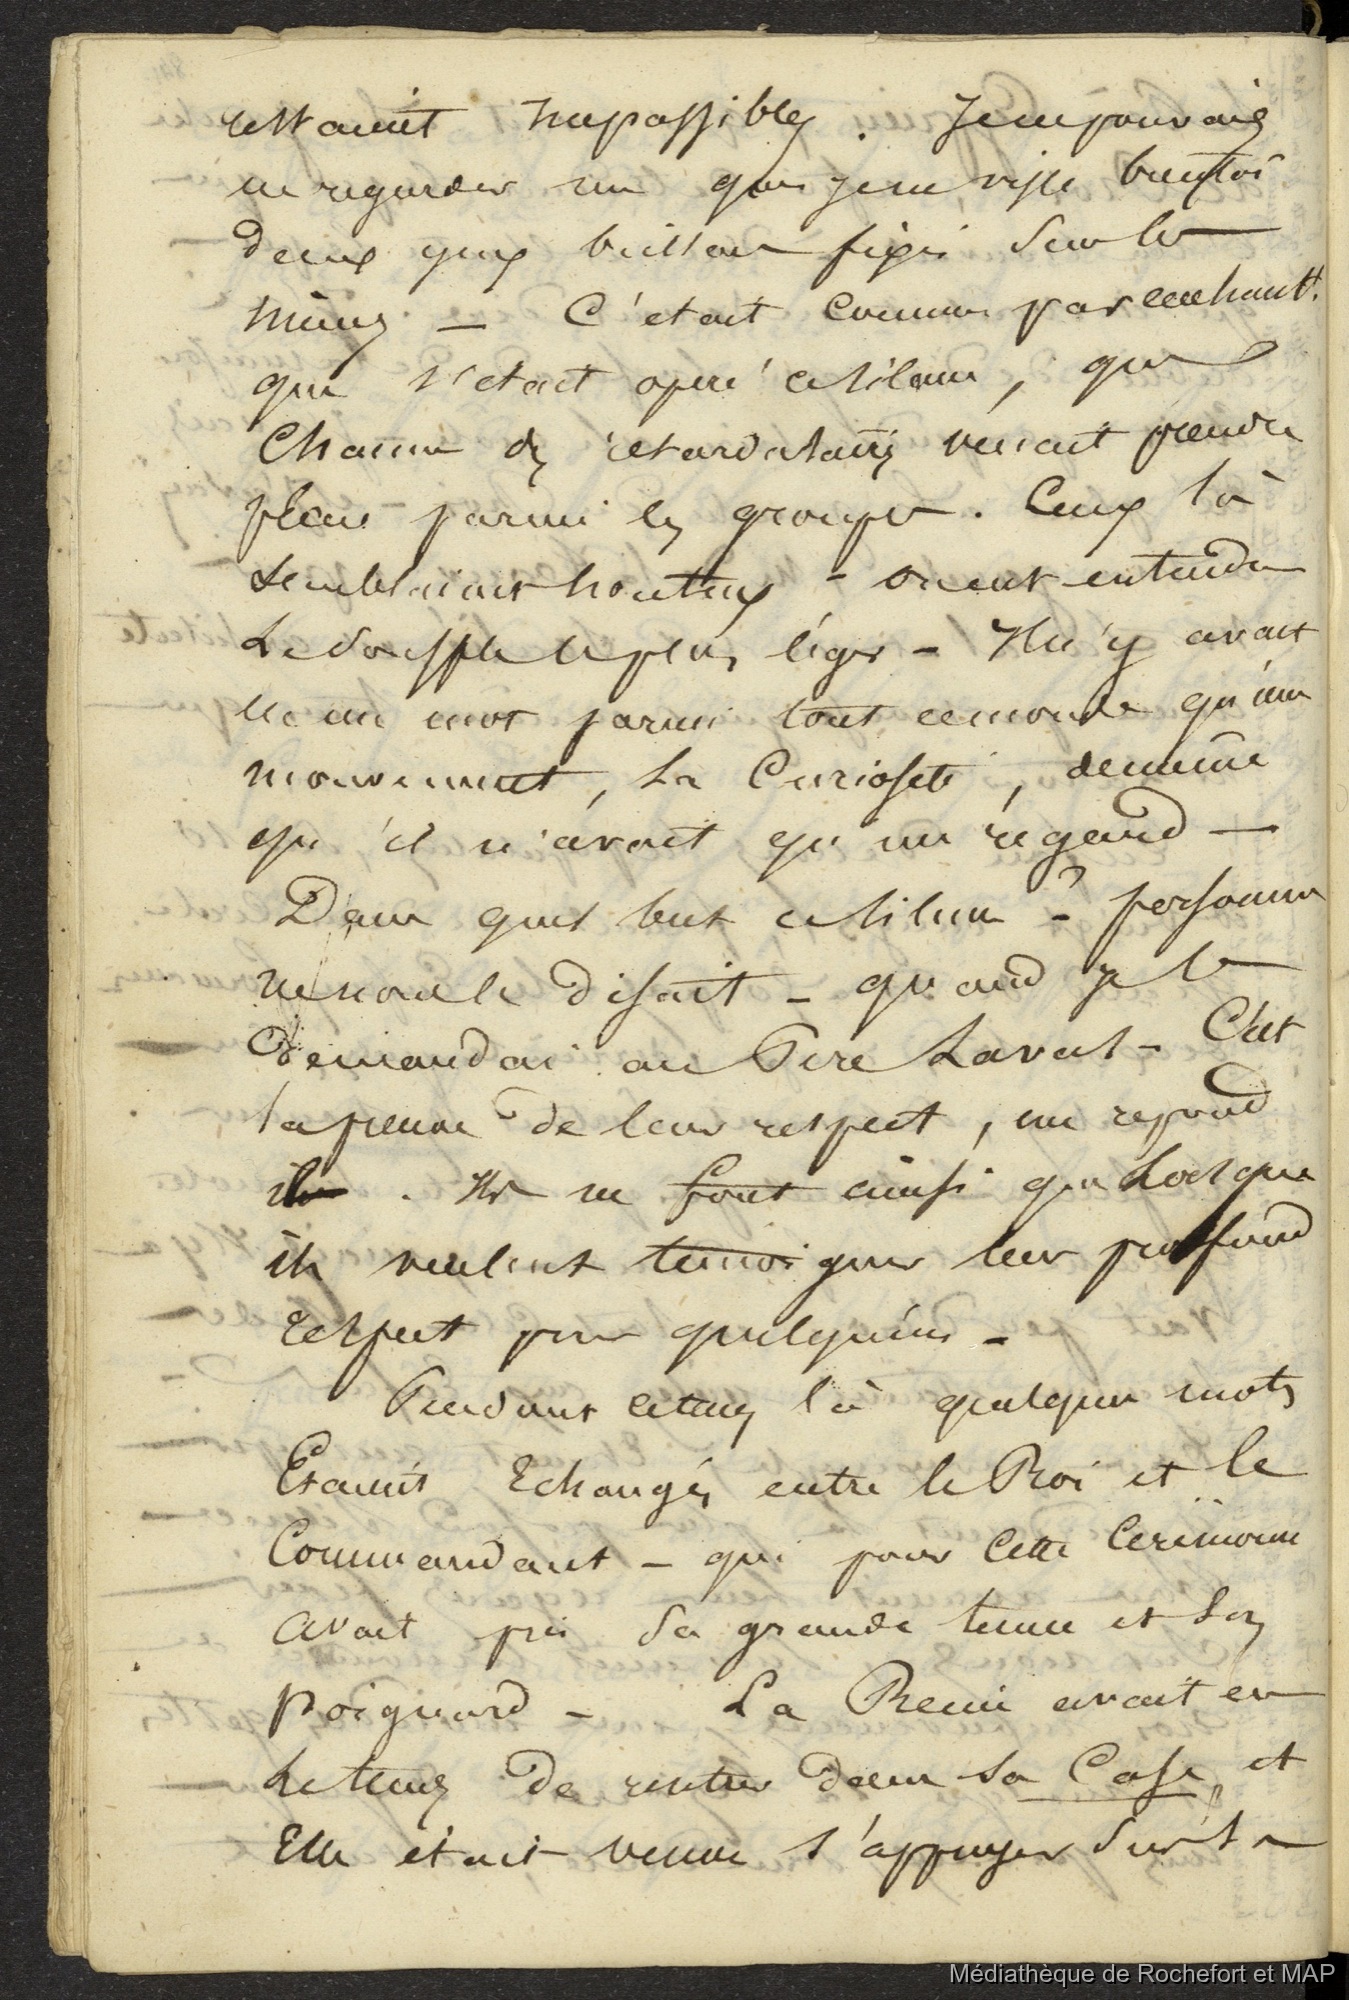 restaient impassibles. Je ne pouvais
en regarder un que je ne visse bientôt
deux yeux brillans fixés sur les
miens — C'etait comme par enchantt.
que s'etait operé ce silence, que
Chacun des retardataires venait prendre
place parmi les groupes. Ceux là
semblaient honteux - on eut entendu
le souffle le plus léger - Il n'y avait
en un mot parmi tout ce monde qu'un
mouvement, la Curiosité, de meme
qu'il n'avait qu'un regard —
Dans quel but ce silence ? - personne
ne nous le disait - quand je le
demandai au Père Laval - C'est
la preuve de leur respect, me repond
il. Ils ne font ainsi que lorsque
ils veulent temoigner leur profond
respect pour quelqu'un -
Pendant ce tems là quelques mots
Etaient Echangés entre le Roi et le
Commandant - qui pour cette Cerémonie
avait pris sa grande tenue et son
poignard - La Reine avait eu
le tems de rentrer dans sa Case, et
Elle était venue s'appuyer sur la
Médiathèque de Rochefort et MAP